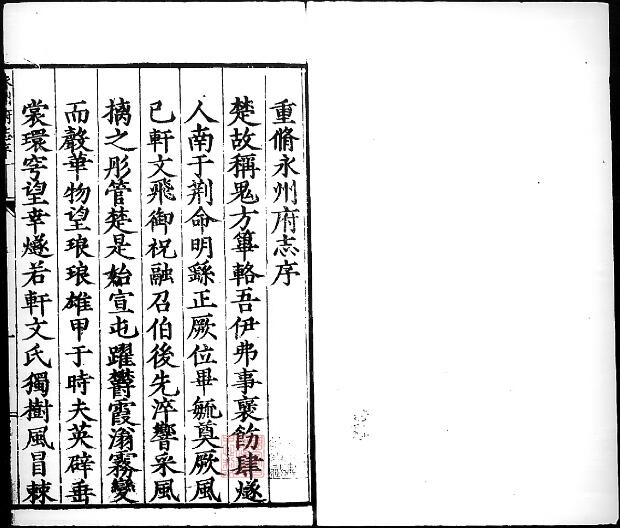 重脩永州府志序
楚故稱鬼方篳輅吾伊弗事褒飭肆燧
人南于荆命明繇正厥位畢毓奠厥風
已軒文飛御祝融召伯後先淬響采風
摛之彤管楚是始宣屯躍欝霞滃霧變
而嚴華物望琅琅雄甲于時夫英辟垂
裳環穹望幸燧若軒文氏獨樹風冒棘